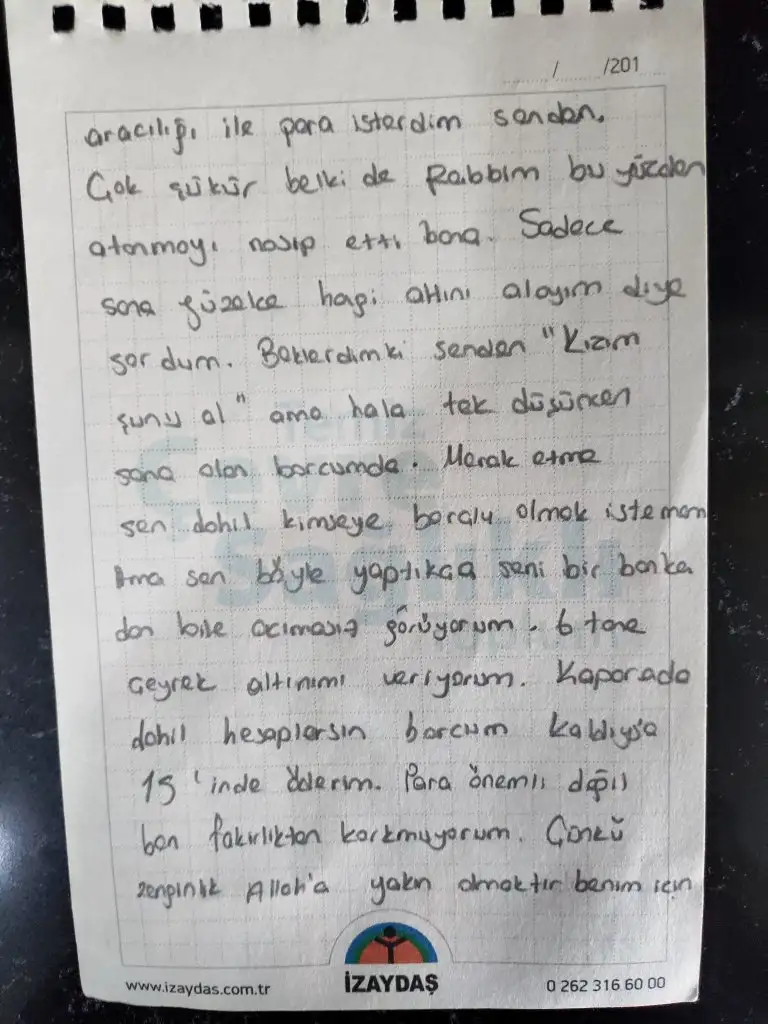 / /201
aracılığı ile para isterdim senden.
Çok şükür belki de Rabbim bu yüzden
atanmayı nasip etti bana. Sadece
sana güzelce hangi altını alayım diye
sordum. Beklerdimki senden "Kızım
şunu al" ama hala tek düşüncen
sana olan borcumda. Merak etme
sen dahil kimseye borçlu olmak istemem
Ama sen böyle yaptıkça seni bir banka
dan bile acımasız görüyorum. 6 tane
Çeyrek altınımı veriyorum. Kaporada
dahil hesaplarsın borcum kaldıysa
15'inde öderim. Para önemli değil
ben fakirlikten korkmuyorum. Çünkü
zenginlik Allah'a yakın olmaktır benim için
Temiz
Çevre
Sağlıklı
www.izaydas.com.tr
İZAYDAŞ
0 262 316 60 00